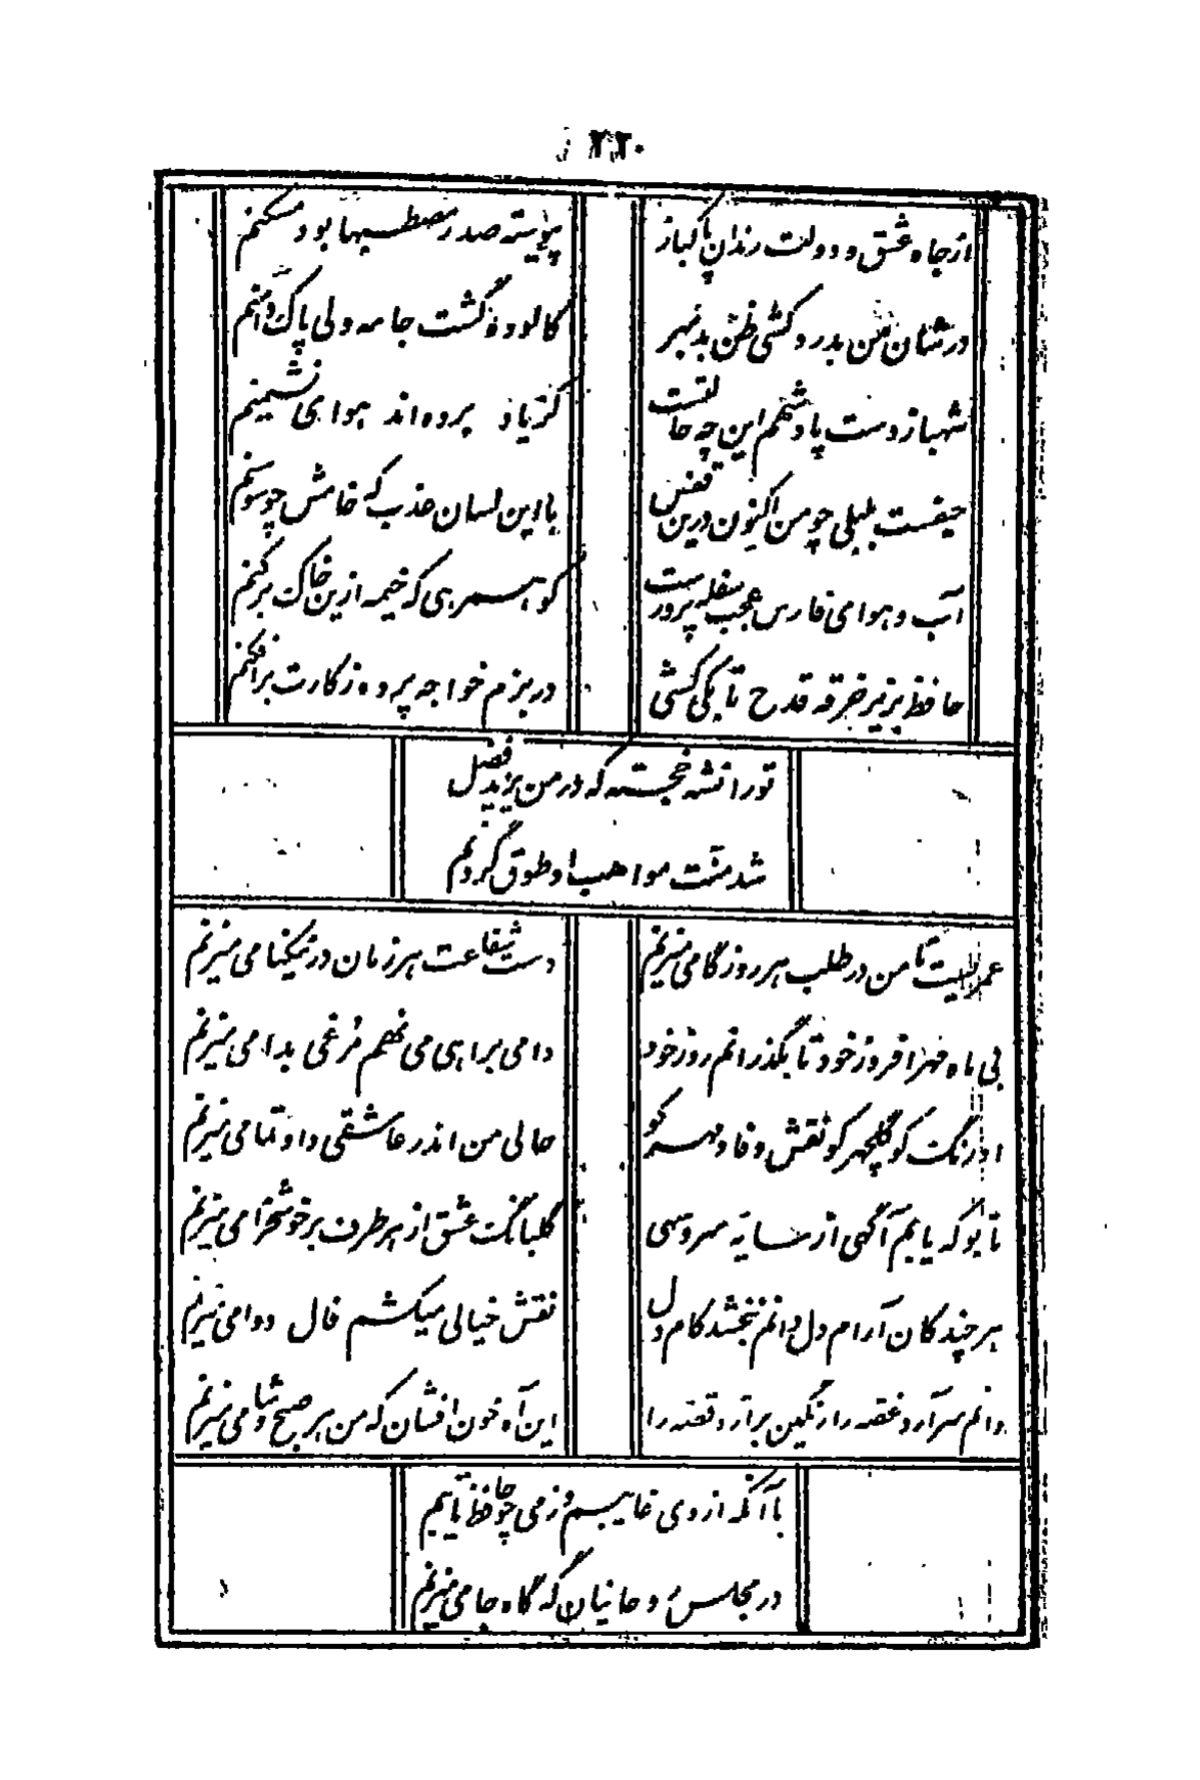 ۲۲۰
از جاه عشق و دولت رندان پاکباز
پیوسته صدر مصطبها بود مسکنم
در شان من بدرد کشی ظن بد مبر
کالوده گشت جامه ولی پاک دامنم
شهباز دست پادشهم این چه حالتست
کز یاد برده اند هوای نشیمنم
حیفست بلبلی چو من اکنون درین قفس
با این لسان عذب که خامش چو سوسنم
آب و هوای فارس عجب سفله پرورست
کو همرهی که خیمه ازین خاک برکنم
حافظ بزیر خرقه قدح تا بکی کشی
در بزم خواجه پرده ز کارت برافکنم
تورانشه خجسته که در من یزید فضل
شد منت مواهب او طوق گردنم
عمریست تا من در طلب هر روز گامی میزنم
دست شفاعت هر زمان در نیکنامی میزنم
بی ماه مهر افروز خود تا بگذرانم روز خود
دامی براهی می نهم مرغی بدامی میزنم
اورنگ کو گلچهر کو نقش وفا و مهر کو
حالی من اندر عاشقی داو تمامی میزنم
تا بو که یابم آگهی از سایه سرو سهی
گلبانگ عشق از هر طرف بر خوشخرامی میزنم
هر چند کان آرام دل دانم نبخشد کام دل
نقش خیالی میکشم فال دوامی میزنم
دانم سرآرد غصه را رنگین برآرد قصه را
این آه خون افشان که من هر صبح و شامی میزنم
با آنکه از وی غایبم وز می چو حافظ تایبم
در مجلس روحانیان گه گاه جامی میزنم